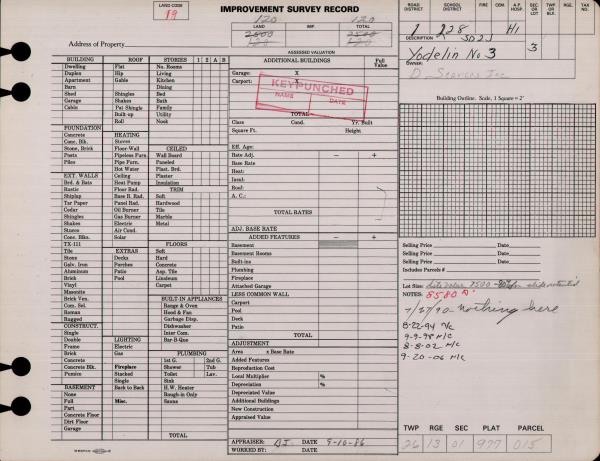 LAND CODE
19
IMPROVEMENT SURVEY RECORD
120 120
LAND IMP. TOTAL
2500 2500
120 120
Address of Property
ASSESSED VALUATION
ROAD DISTRICT SCHOOL DISTRICT FIRE CEM. A.P. HOSP SEC OR LOT TWP OR BLK RGE. TAX NO.
1 228 H1
DESCRIPTION SD2J 3
Yodelin No 3
OWNER
BUILDING ROOF STORIES 1 2 A B
Dwelling Flat No. Rooms
Duplex Hip Living
Apartment Gable Kitchen
Barn Dining
Shed Shingles Bed
Garage Shakes Bath
Cabin Pat Shingle Family
Built-up Utility
Roll Nook
FOUNDATION
Concrete HEATING
Conc. Blk. Stoves
Stone, Brick Floor-Wall CEILED
Posts Pipeless Furn. Wall Board
Piles Pipe Furn. Paneled
Hot Water Plast. Brd.
EXT. WALLS Ceiling Plaster
Brd. & Bats Heat Pump Insulation
Rustic Floor Rad. TRIM
Shiplap Base B. Rad. Soft
Tar Paper Panel Rad. Hardwood
Cedar Oil Burner Tile
Shingles Gas Burner Marble
Shakes Electric Metal
Stucco Air Cond.
Conc. Blks. Solar
TX-111 FLOORS
Tile EXTRAS Soft
Stone Decks Hard
Galv. Iron Porches Concrete
Aluminum Patio Asp. Tile
Brick Pool Linoleum
Vinyl Carpet
Masonite
Brick Ven. BUILT-IN APPLIANCES
Com. Sel. Range & Oven
Roman Hood & Fan
Rugged Garbage Disp.
CONSTRUCT. Dishwasher
Single Inter Com.
Double LIGHTING Bar-B-Que
Frame Electric
Brick Gas PLUMBING
Concrete 1st G. 2nd G.
Concrete Blk. Fireplace Shower Tub
Pumice Stacked Toilet Lav.
Single Sink
BASEMENT Back to Back H.W. Heater
None Rough-in Only
Full Misc. Sauna
Part
Concrete Floor
Dirt Floor
Garage TOTAL
ADDITIONAL BUILDINGS Full Value
Garage: X
Carport: X
KEYPUNCHED
NAME DATE
TOTAL
Class Cond. Yr. Built
Square Ft. Height
Eff. Age:
Rate Adj. − +
Base Rate
Heat:
Insul:
Roof:
A. C.:
TOTAL RATES
ADJ. BASE RATE
ADDED FEATURES − +
Basement
Basement Rooms
Built-ins
Plumbing
Fireplace
Attached Garage
LESS COMMON WALL
Carport
Pool
Deck
Patio
TOTAL
ADJUSTMENT
x Base Rate
Added Features
Reproduction Cost
Local Multiplier %
Depreciation %
Depreciated Value
Additional Buildings
New Construction
Appraised Value
APPRAISER: DATE 9-10-86
WORKED BY: DATE
Building Outline. Scale, 1 Square = 2'
Selling Price Date
Selling Price Date
Selling Price Date
Includes Parcels #
Lot Size:
NOTES: 8580
7/27/90 nothing here
8-22-94 N/C
9-9-98 N/C
8-8-02 N/C
9-20-06 N/C
TWP RGE SEC PLAT PARCEL
26 13 01 977 015